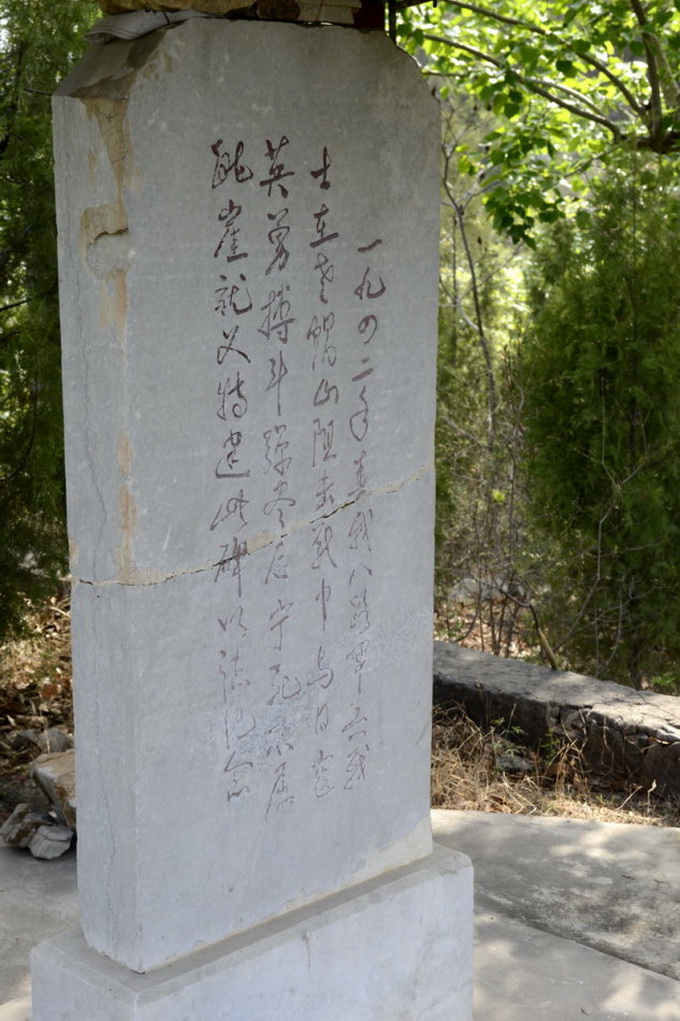 一九四二年春我八路军六战
士在老帽山阻击战中与日寇
英勇搏斗弹尽后宁死不屈
跳崖就义特建此碑以誌纪念